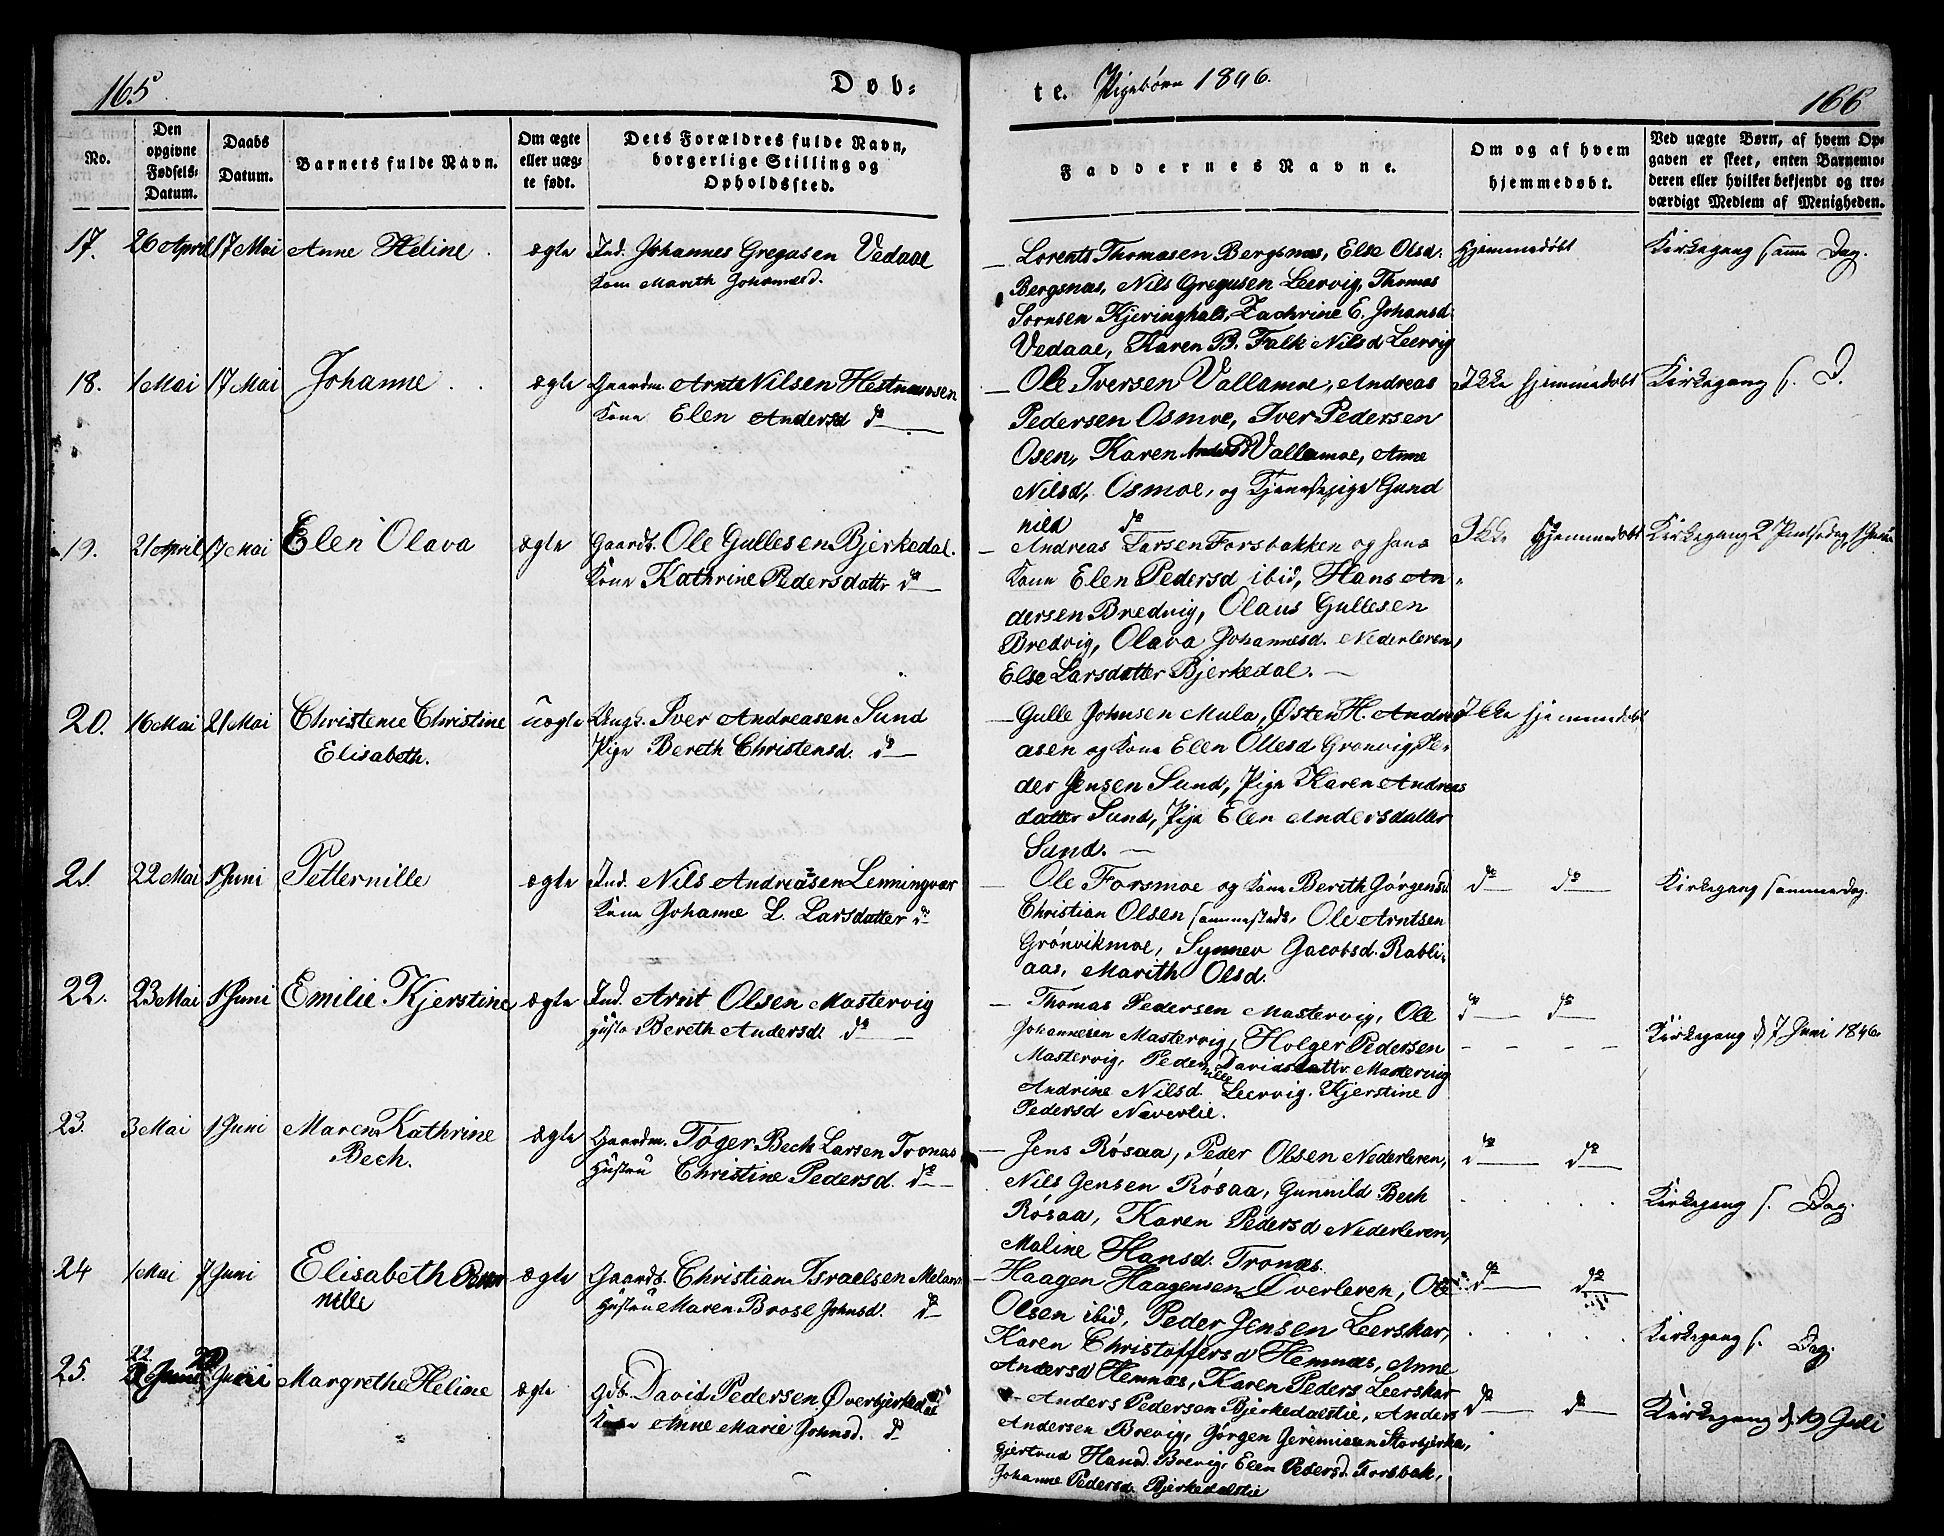 165
Døb-
te. Pigebørn 1846.
166
No.
Den opgivne Fødsels-Datum.
Daabs Datum.
Barnets fulde Navn.
Om ægte eller uæg-te født.
Dets Forældres fulde Navn, borgerlige Stilling og Opholdssted.
Faddernes Navne.
Om og af hvem hjemmedøbt.
Ved uægte Børn, af hvem Op-gaven er skeet, enten Barnemo-deren eller hvilket bekjendt og tro-værdigt Medlem af Menigheden.
17. 26 April 17 Mai Anne Heline ægte Ind. Johannes Gregusen Vedaae
Kone Mareth Johannesd.
Lorents Thomasen Bergsnæs, Else Olsd.
Bergsnæs, Nils Gregusen Leervig, Thomas
Sørnsen Kjeringhals, Zachrine E. Johansd.
Vedaae, Karen B. Falk Nilsd Leervig
Hjemmedøbt
Kirkegang samme Dag.
18. 1 Mai 17 Mai Johanne ægte Gaardm. Arnt Nilsen Hestnæsosen
Kone Elen Andersd do
Ole Iversen Vallamoe, Andreas
Pedersen Osmoe, Iver Pedersen
Osen, Karen Andersd Vallamoe, Anne
Nilsd. Osmoe, og Tjenestepige Gund
nild do
Ikke Hjemmedøbt
Kirkegang s. D.
19. 21 April 17 Mai Elen Olava ægte Gaardb. Ole Gullesen Bjerkedal.
Kone Kathrine Pedersdatter do
Andreas Larsen Forsbakken og hans
Kone Elen Pedersd ibid, Hans An-
dersen Bredvig, Olaus Gullesen
Bredvig, Olava Johannesd. Nederleren,
Else Larsdatter Bjerkedal.
Ikke Hjemmedøbt
Kirkegang 2 Pintsedag, 1 Juni
20. 16 Mai 21 Mai Christence Christine
Elisabeth.
uægte Ungk. Iver Andreasen Sund
Pige Bereth Christensd. do
Gulle Johnsen Mula, Østen H. Andre
asen og Kone Elen Ollesd Grønvig, Pe-
der Jensen Sund, Pige Karen Andreas
datter Sund, Pige Elen Andersdatter
Sund.
Ikke Hjemmedøbt
21. 22 Mai 1 Juni Petternille ægte Ind. Nils Andreasen Lenningvær
Kone Johanne L. Larsdatter do
Ole Forsmoe og Kone Berith Jørgensd.
Christian Olsen sammesteds, Ole Arntsen
Grønvikmoe, Synnev Jacobsd. Rabli-
aas, Marith Olsd.
do do
Kirkegang sammedag.
22. 23 Mai 1 Juni Emilie Kjerstine ægte Ind. Arnt Olsen Mastervig
Hustr Bereth Andersd. do
Thomas Pedersen Mastervig, Ole
Johannesen Mastervig, Holger Pedersen
Mastervig, Peder nille Davidsdattr. Mastervig
Andrine Nilsd. Leervig. Kjerstine
Pedersd Naverlie.
do do
Kirkegang d 7 Juni 1846.
23. 3 Mai 1 Juni Maren Kathrine
Bech.
ægte Gaardm. Tøger Bech Larsen Tronæs
Hustru Christine Pedersd. do
Jens Røsaa, Peder Olsen Nederleren,
Nils Jensen Røsaa, Gunnild Bech
Røsaa, Karen Pedersd Nederleren,
Maline Hansd. Tronæs.
do do
Kirkegang s. Dag.
24 1 Mai 7 Juni Elisabeth Pern
nille
ægte Gaardb. Christian Israelsen
Hustru Maren Brose Johnsd. do
Haagen Haagensen Overleren, Ole
Olsen ibid, Peder Jensen Leerskar,
Karen Christoffersd Hemnæs, Anne
Andersd Hemnæs, Karen Peders Leerskar
do do
Kirkegang s. Dag.
25. 22 Juni Margrethe Heline ægte gdb. David Pedersen Øverbjerkedal
Kone Anne Marie Johnsd. do
Anders Pedersen Bjerkedalstie, Anders
Andersen Brevig, Jørgen Jeremiasen Storbjerka,
Gjertrud Hansd. Brevig, Elen Pedersd. Forsbak,
Johanne Pedersd. Bjerkedalstie
do do
Kirkegang d. 19 Juli